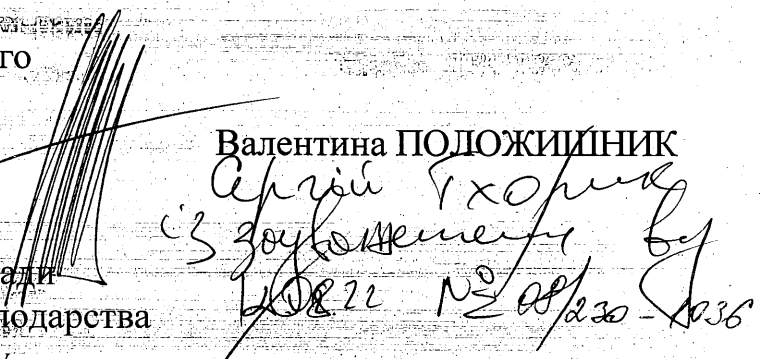 го
Валентина ПОЛОЖИШНИК
Сергій Тхорик
із зауваженнями від
22 № 08/230-1036
ади
подарства